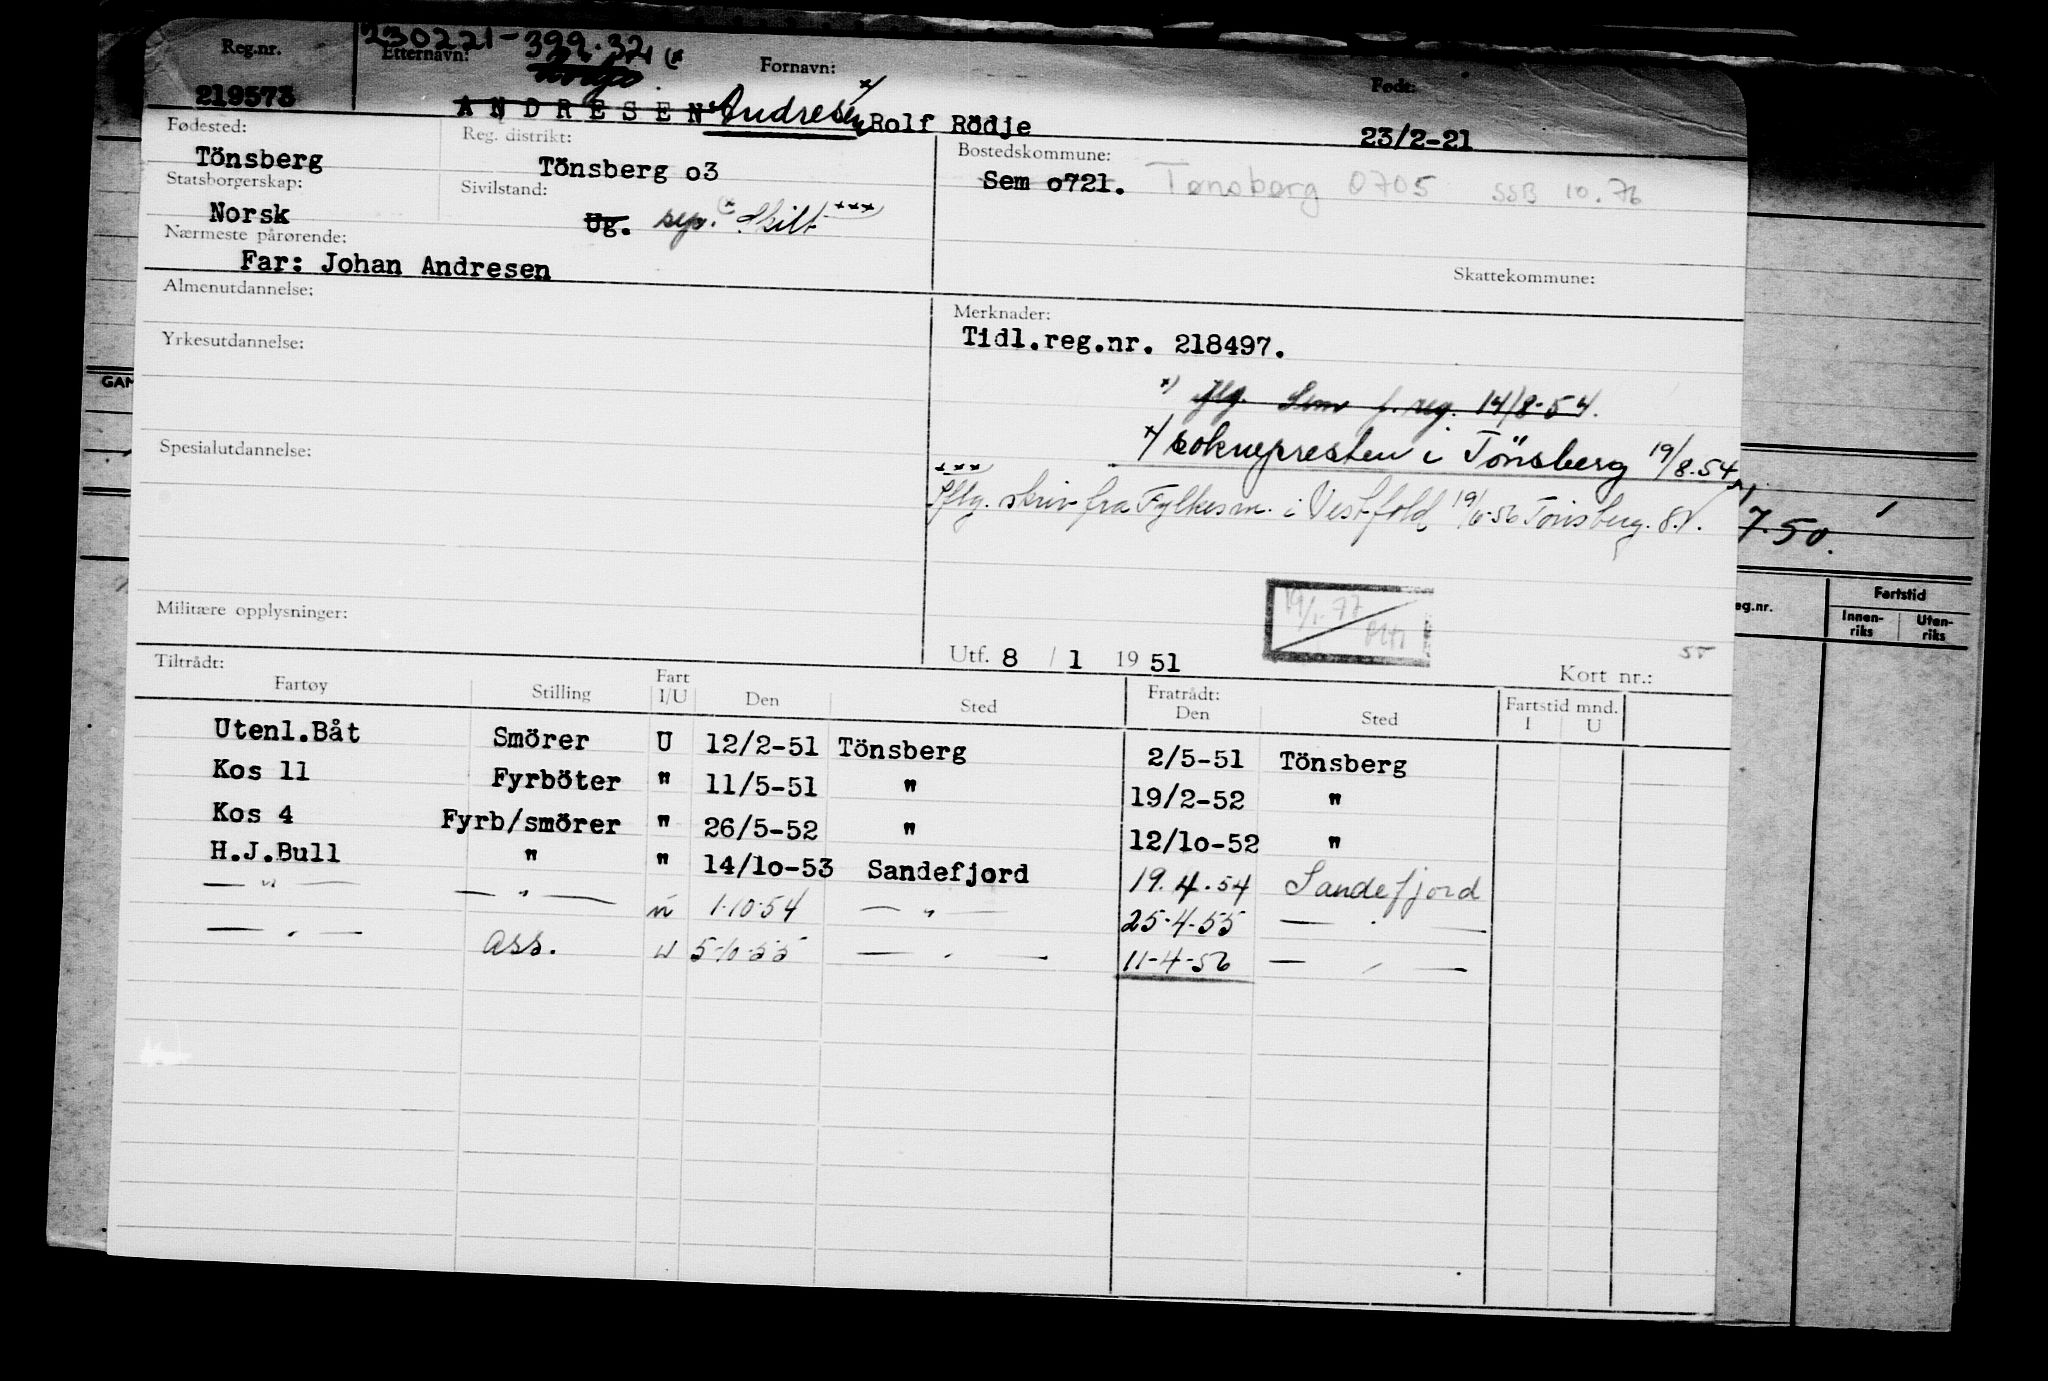 230221-399.32 (*
Reg.nr. Etternavn: Fornavn: Født:
219573 ANDRESEN Andresen x/ Rolf Rödje 23/2-21
Fødested: Reg. distrikt: Bostedskommune:
Tönsberg Tönsberg o3 Sem o721. Tønsberg 0705 SSB 10.76
Statsborgerskap: Sivilstand:
Norsk Ug. sep. (* Skilt ***)
Nærmeste pårørende:
Far: Johan Andresen
Skattekommune:
Almenutdannelse: Merknader:
Tidl.reg.nr. 218497.
Yrkesutdannelse:
*) Iflg. Sem f. reg. 14/8-54.
*/ soknepresten i Tönsberg 19/8.54
Spesialutdannelse:
***) Iflg. skriv fra Fylkesm. i Vestfold, Tönsberg.
7.50.
GAM
Fartstid
eg.nr. Innen-riks Uten-riks
Militære opplysninger:
19/1-77
Utf. 8 / 1 19 51
Kort nr.: 55
Tiltrådt: Fratrådt:
Fartøy Stilling Fart I/U Den Sted Den Sted Fartstid mnd. I U
Utenl.Båt Smörer U 12/2-51 Tönsberg 2/5-51 Tönsberg
Kos 11 Fyrböter " 11/5-51 " 19/2-52 "
Kos 4 Fyrb/smörer " 26/5-52 " 12/1o-52 "
H.J.Bull " " 14/1o-53 Sandefjord 19.4.54 Sandefjord
— " — — " — u 1.10.54 — " — 25-4-55 — " —
— " — ass. u 5-10-55 — " — 11-4-56 — " —